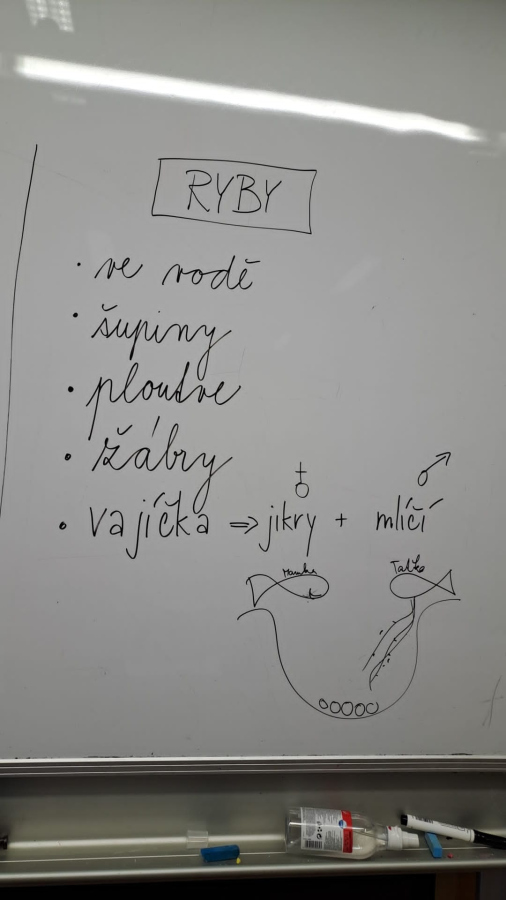 RYBY
· ve vodě
· šupiny
· ploutve
· žábry
♀ ♂
· vajíčka ⇒ jikry + mlíčí
Mamka Taťka